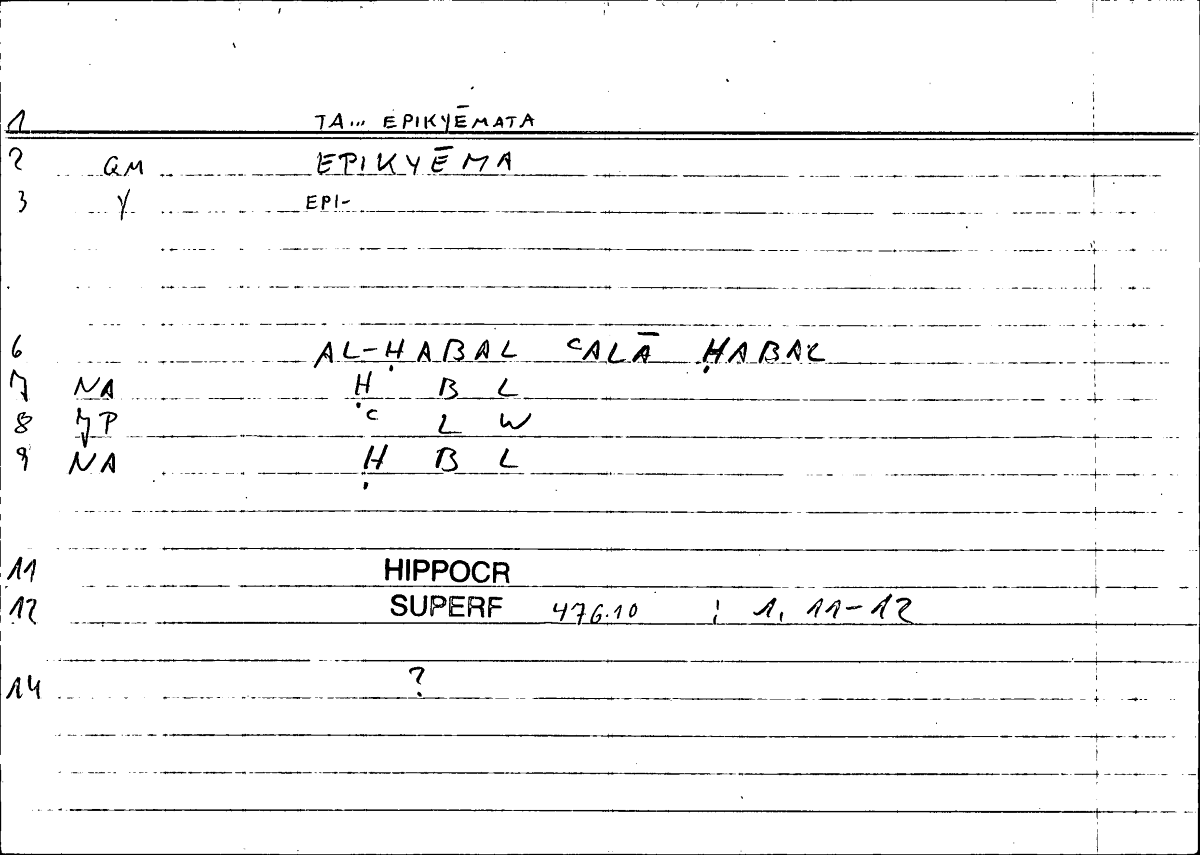 1 TA... EPIKYĒMATA
2 QM EPIKYĒMA
3 Y EPI-
6 AL-ḤABAL ʿALĀ ḤABAL
7 NA Ḥ B L
8 JP ʿ L W
9 NA Ḥ B L
11 HIPPOCR
12 SUPERF 476.10 ; 1, 11-12
14 ?